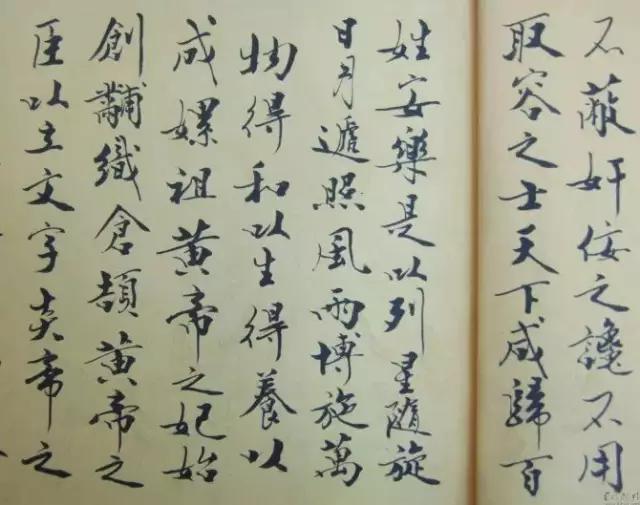 不蔽奸佞之讒不用
取容之士天下咸歸百
姓安樂是以列星隨旋
日月遞照風雨博施萬
物得和以生得養以
成嫘祖黃帝之妃始
創黼織倉頡黃帝之
臣以立文字炎帝之